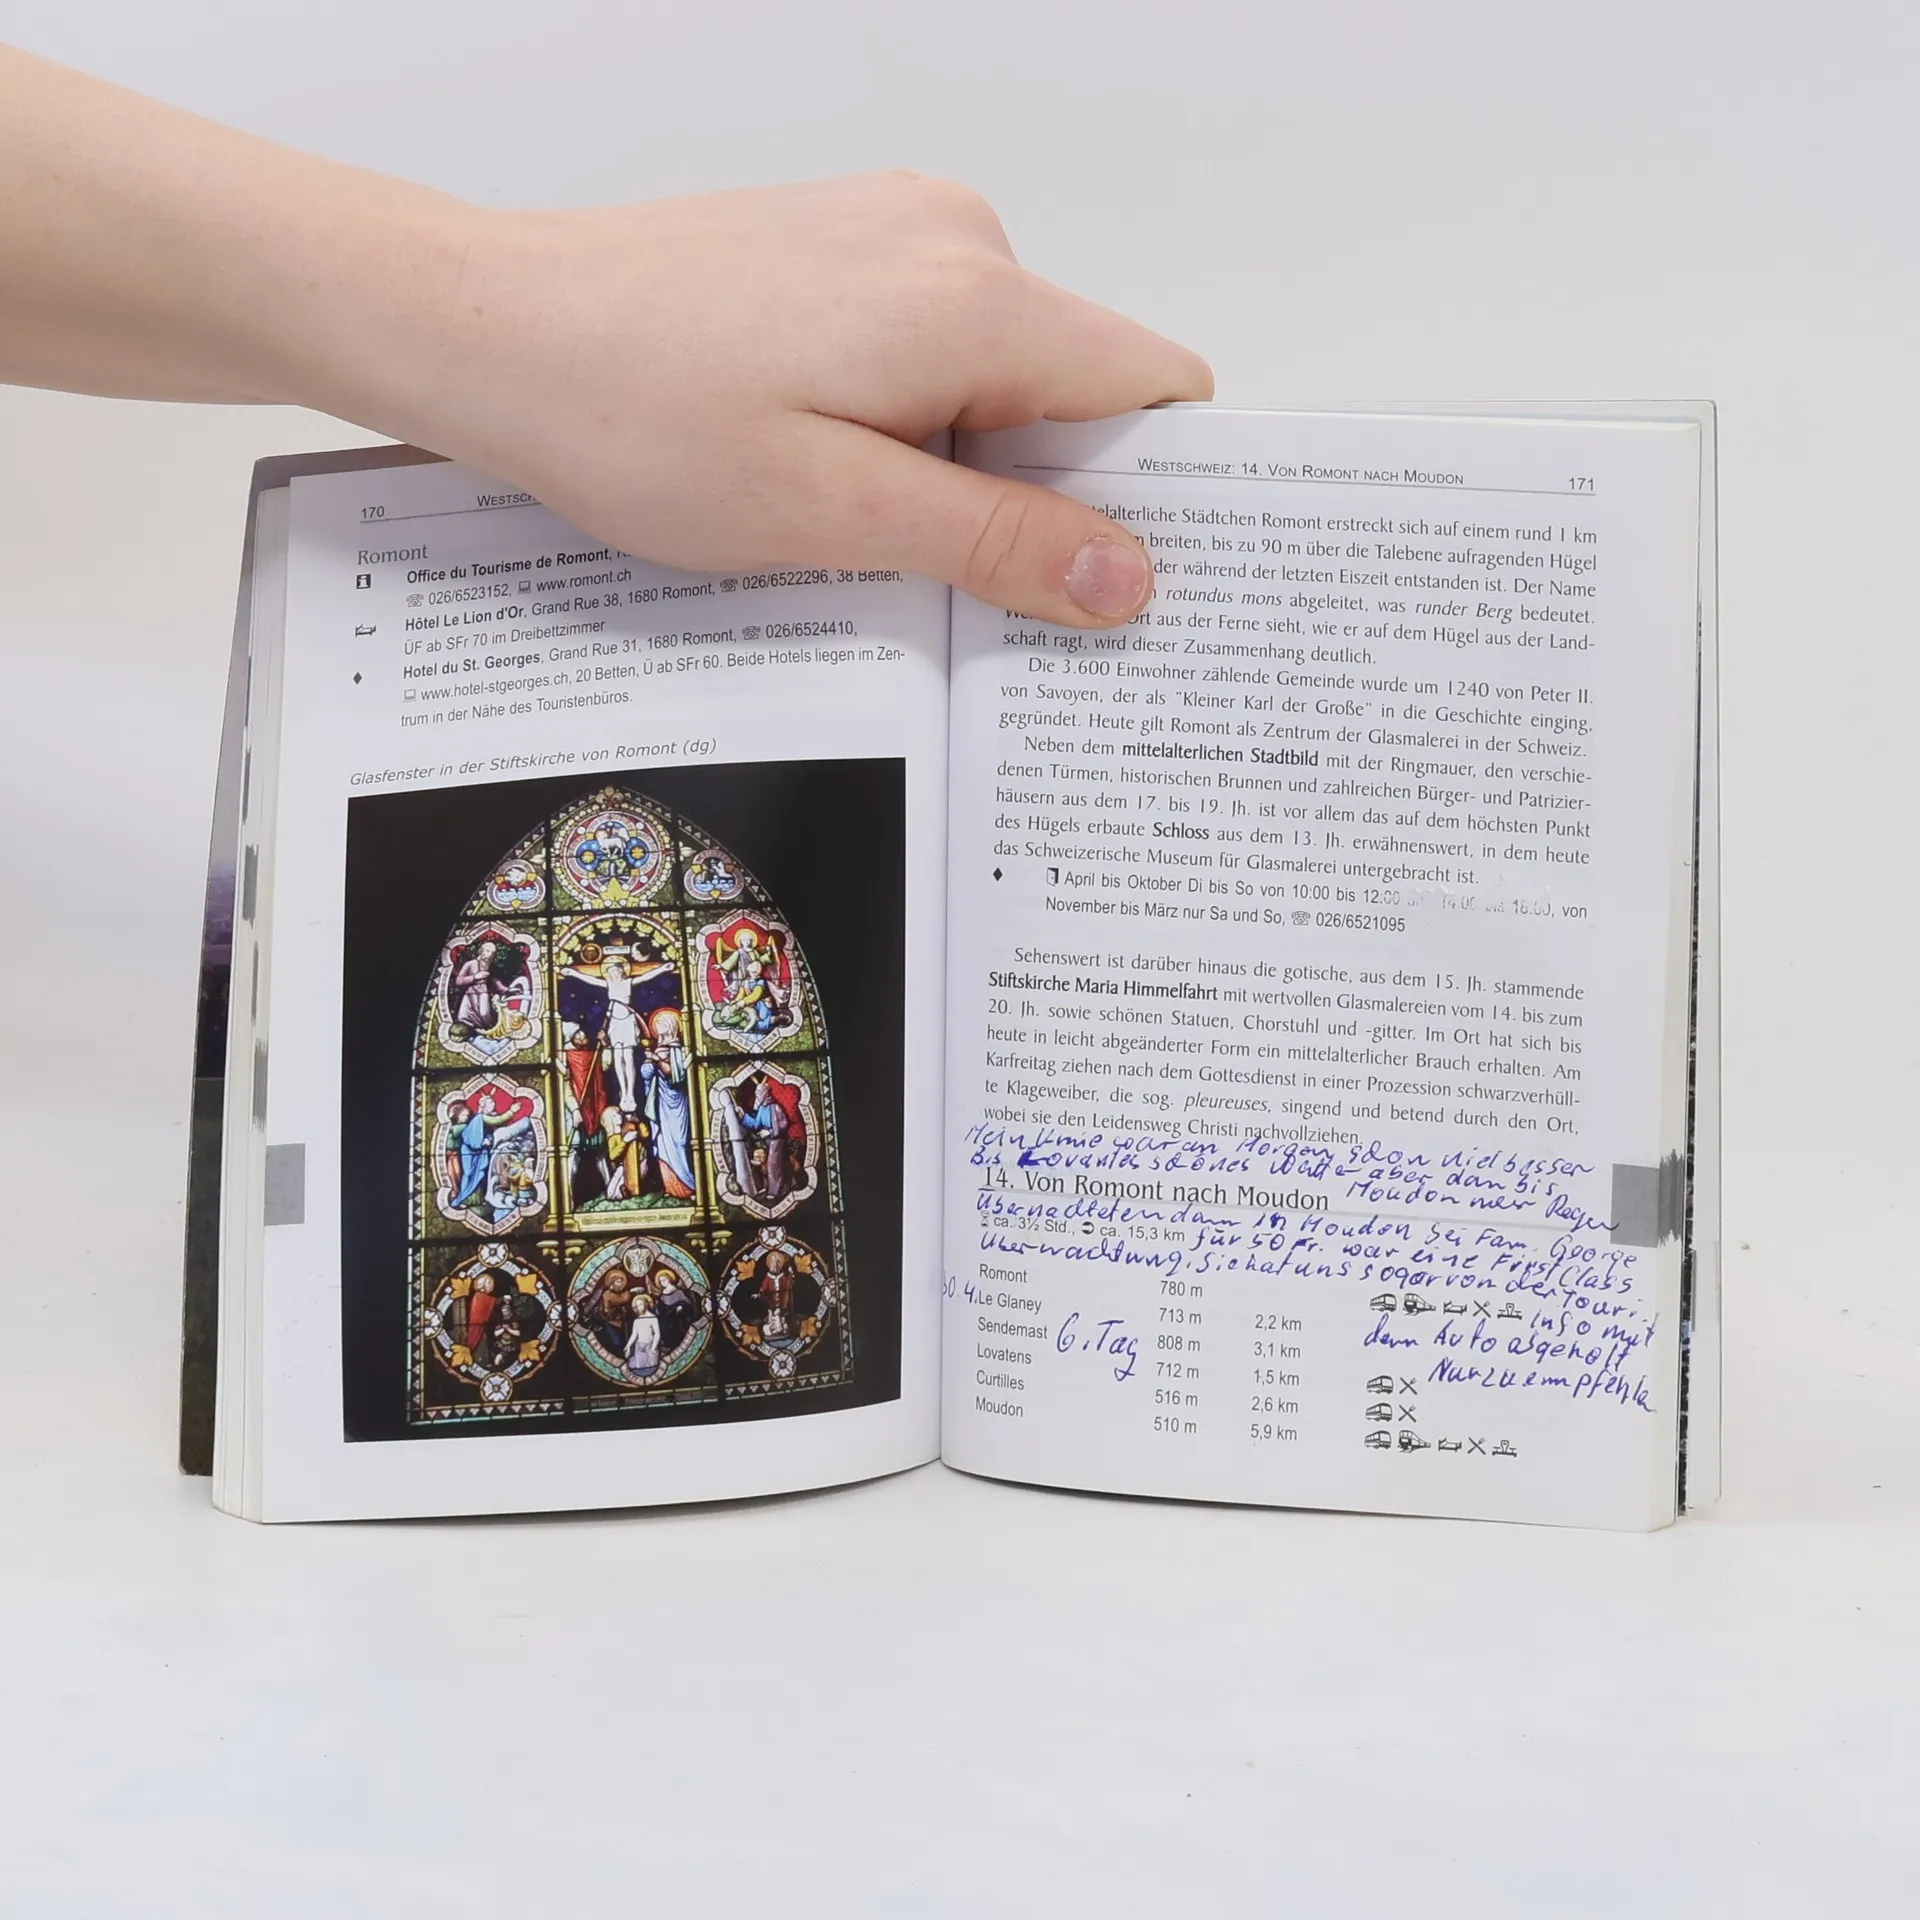 170
Romont
Office du Tourisme de Romont,
☎ 026/6523152, www.romont.ch
Hôtel Le Lion d'Or, Grand Rue 38, 1680 Romont, ☎ 026/6522296, 38 Betten,
ÜF ab SFr 70 im Dreibettzimmer
♦ Hotel du St. Georges, Grand Rue 31, 1680 Romont, ☎ 026/6524410,
www.hotel-stgeorges.ch, 20 Betten, Ü ab SFr 60. Beide Hotels liegen im Zen-
trum in der Nähe des Touristenbüros.
Glasfenster in der Stiftskirche von Romont (dg)
WESTSCHWEIZ: 14. VON ROMONT NACH MOUDON 171
Städtchen Romont erstreckt sich auf einem rund 1 km
breiten, bis zu 90 m über die Talebene aufragenden Hügel
der während der letzten Eiszeit entstanden ist. Der Name
rotundus mons abgeleitet, was runder Berg bedeutet.
Ort aus der Ferne sieht, wie er auf dem Hügel aus der Land-
schaft ragt, wird dieser Zusammenhang deutlich.
Die 3.600 Einwohner zählende Gemeinde wurde um 1240 von Peter II.
von Savoyen, der als "Kleiner Karl der Große" in die Geschichte einging,
gegründet. Heute gilt Romont als Zentrum der Glasmalerei in der Schweiz.
Neben dem mittelalterlichen Stadtbild mit der Ringmauer, den verschie-
denen Türmen, historischen Brunnen und zahlreichen Bürger- und Patrizier-
häusern aus dem 17. bis 19. Jh. ist vor allem das auf dem höchsten Punkt
des Hügels erbaute Schloss aus dem 13. Jh. erwähnenswert, in dem heute
das Schweizerische Museum für Glasmalerei untergebracht ist.
♦ April bis Oktober Di bis So von 10:00 bis 12:00 14:00 bis 18:00, von
November bis März nur Sa und So, ☎ 026/6521095
Sehenswert ist darüber hinaus die gotische, aus dem 15. Jh. stammende
Stiftskirche Maria Himmelfahrt mit wertvollen Glasmalereien vom 14. bis zum
20. Jh. sowie schönen Statuen, Chorstuhl und -gitter. Im Ort hat sich bis
heute in leicht abgeänderter Form ein mittelalterlicher Brauch erhalten. Am
Karfreitag ziehen nach dem Gottesdienst in einer Prozession schwarzverhüll-
te Klageweiber, die sog. pleureuses, singend und betend durch den Ort,
wobei sie den Leidensweg Christi nachvollziehen.
Mein Knie war am Morgen schon viel besser
Bis Lovantes schönes Wetter aber dan bis
14. Von Romont nach Moudon Moudon nur Regen
Übernachteten dann in Moudon bei Fam. George
ca. 3½ Std., ca. 15,3 km für 50 Fr. war eine First Class
Überwachtung. Sie hat uns sogar von der Touri.
Romont 780 m Info mit
30.4. Le Glaney 713 m 2,2 km dem Auto abgeholt
Sendemast 6. Tag 808 m 3,1 km
Lovatens 712 m 1,5 km Nur zu empfehlen
Curtilles 516 m 2,6 km
Moudon 510 m 5,9 km